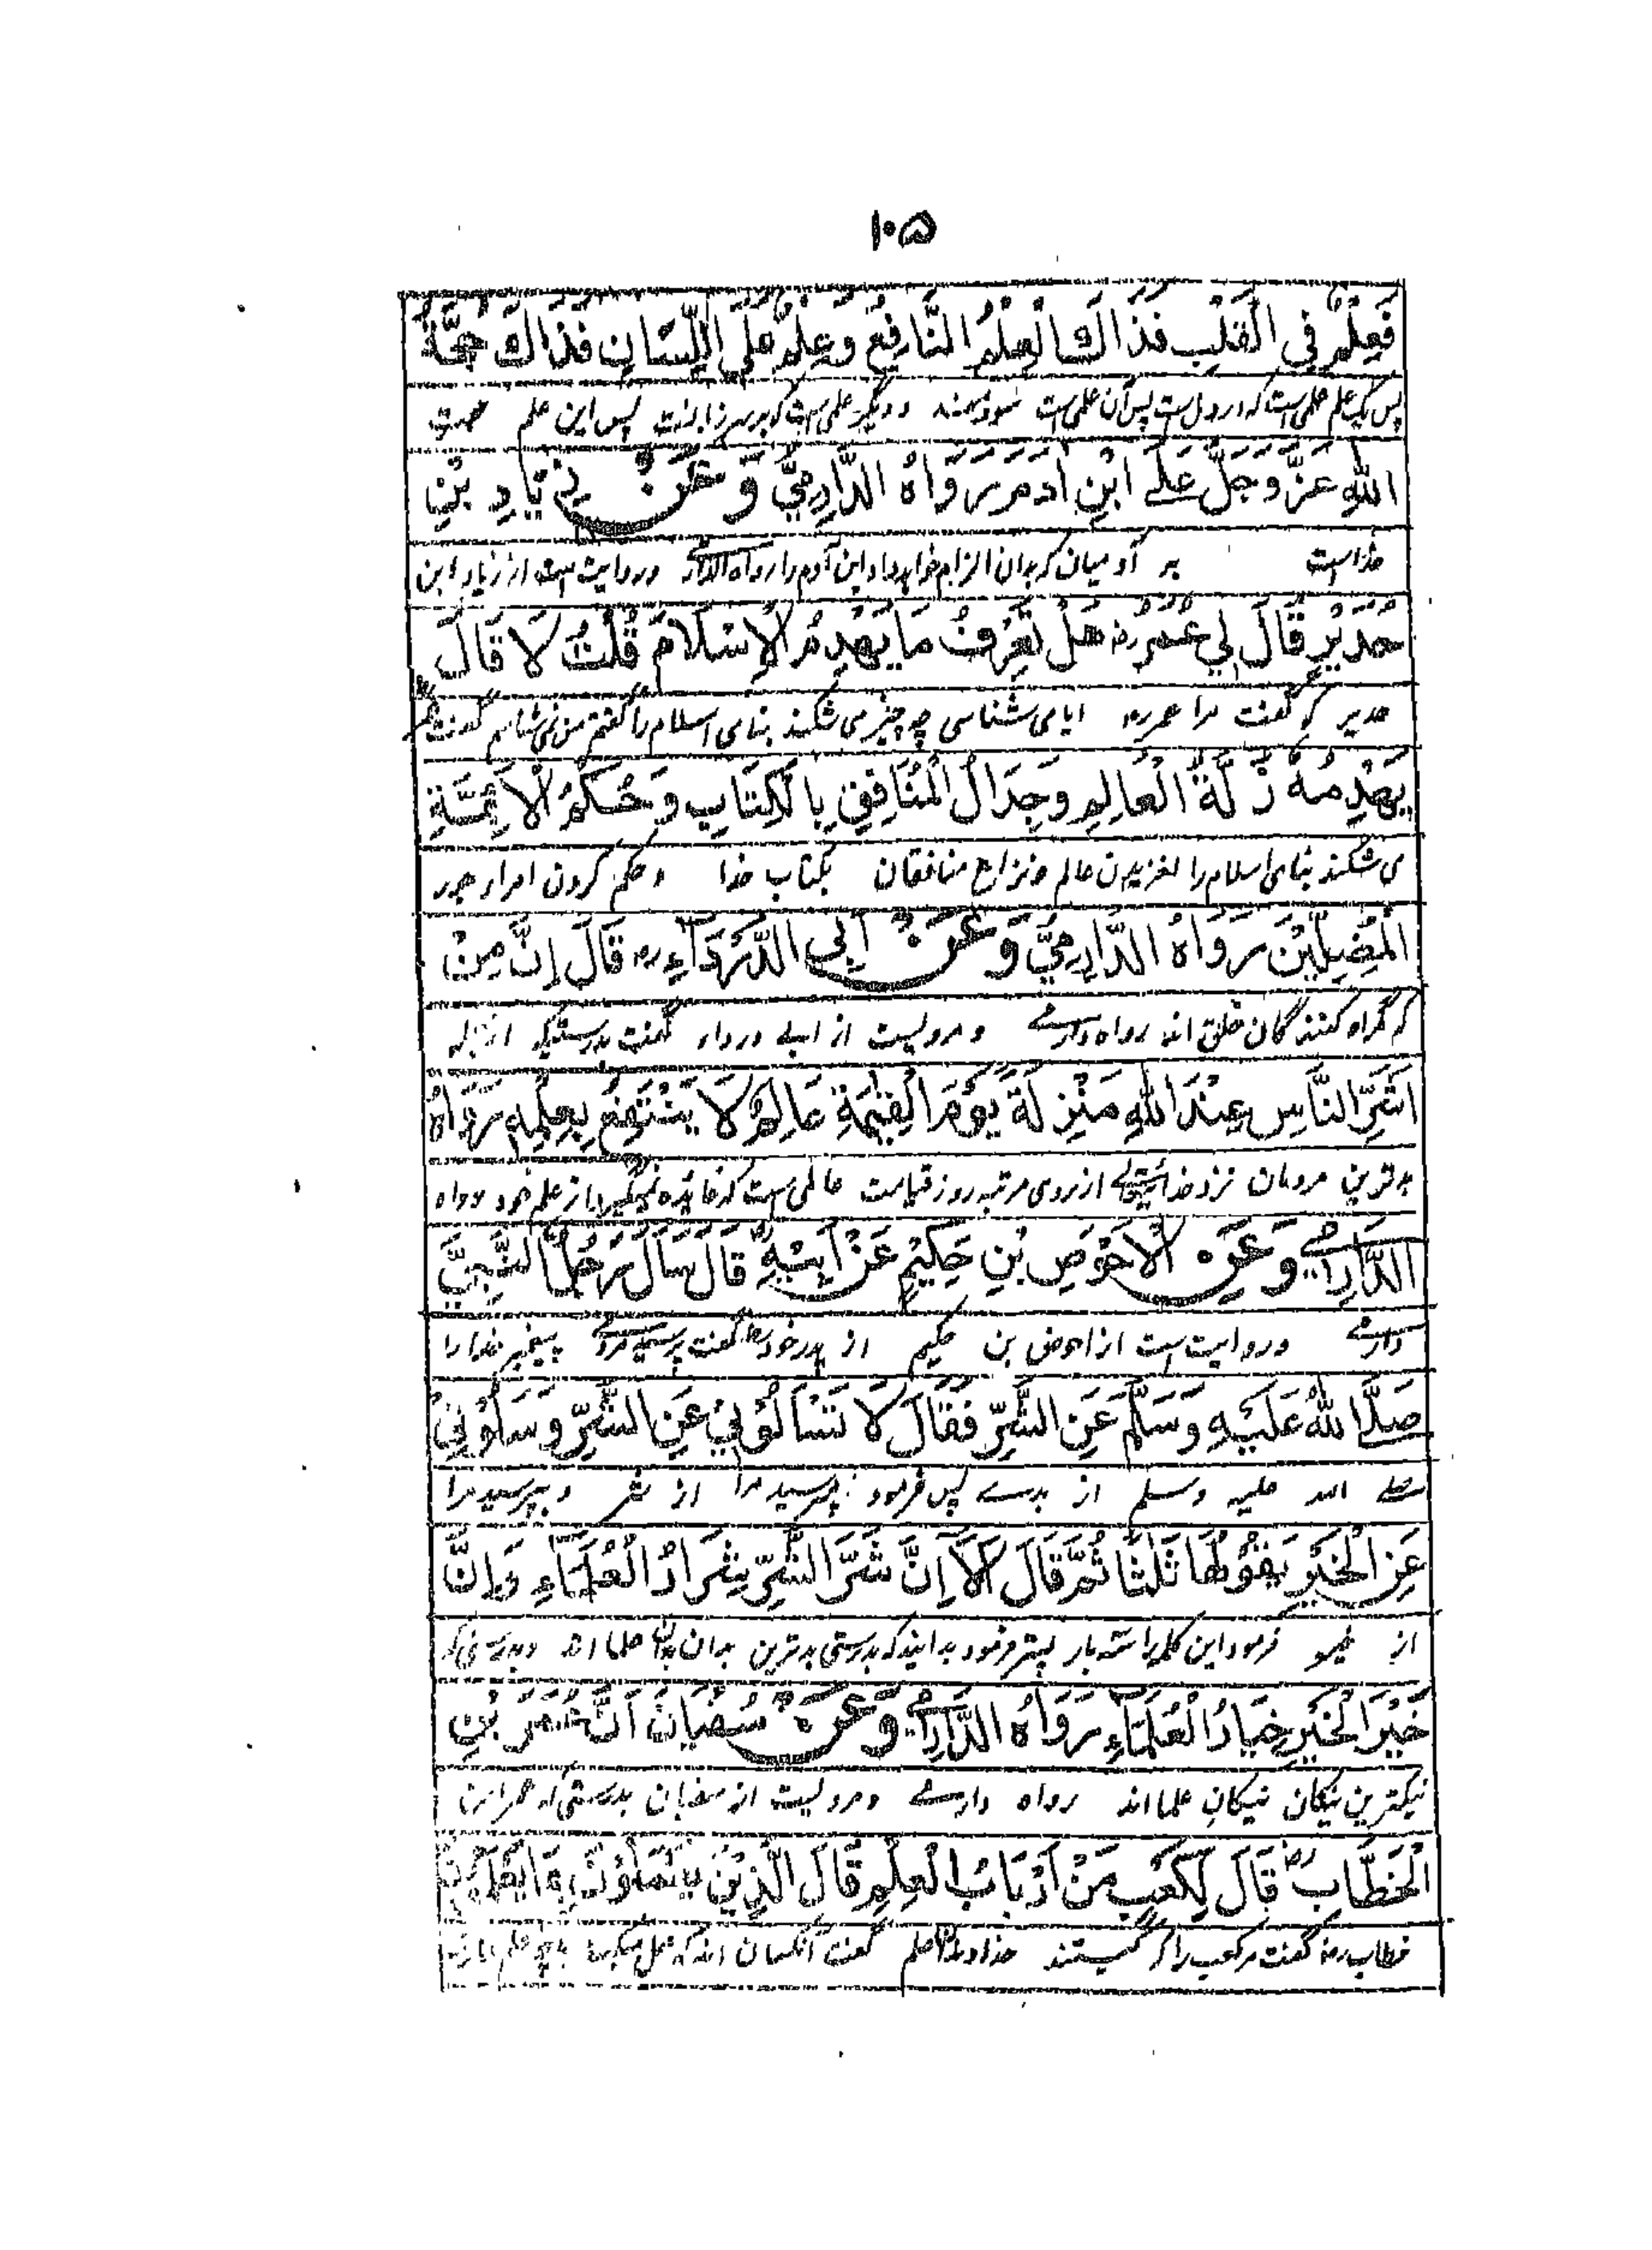 ۱۰۵
فَعِلْمٌ فِي الْقَلْبِ فَذَاكَ الْعِلْمُ النَّافِعُ وَعِلْمٌ عَلَى اللِّسَانِ فَذَاكَ حُجَّةُ
پس یک علم علمی است که در دل است پس آن علمی است سودمند و دیگر علمی است که بر سر زبانست پس این علم حجت
اللهِ عَزَّ وَجَلَّ عَلَى ابْنِ اٰدَمَ رَوَاهُ الدَّارِمِيُّ وَعَنْ زِيَادِ بْنِ
خداست بر آدمیان که بدان الزام خواهد داد ابن آدم را رواه الدارمی و روایت است از زیاد ابن
حُدَيْرٍ قَالَ لِي عُمَرُ رض هَلْ تَعْرِفُ مَا يَهْدِمُ الْاِسْلَامَ قُلْتُ لَا قَالَ
حدیر که گفت مرا عمر رض ایا می شناسی چه چیز می شکند بنای اسلام را گفتم من نمی شناسم گفت عمر
يَهْدِمُهُ زَلَّةُ الْعَالِمِ وَجِدَالُ الْمُنَافِقِ بِالْكِتَابِ وَحُكْمُ الْاَئِمَّةِ
می شکند بنای اسلام را لغزیدن عالم و نزاع منافقان بکتاب خدا و حکم کردن امرای جور
الْمُضِلِّيْنَ رَوَاهُ الدَّارِمِيُّ وَعَنْ اَبِي الدَّرْدَآءِ رض قَالَ اِنَّ مِنْ
که گمراه کنندگان خلق اند رواه دارمی و مرویست از ابی درداء گفت بدرستیکه از جمله
اَشَرِّ النَّاسِ عِنْدَ اللهِ مَنْزِلَةً يَوْمَ الْقِيٰمَةِ عَالِمٌ لَا يَنْتَفِعُ بِعِلْمِهٖ رَوَاهُ
بدترین مردمان نزد خدایتعالی از روی مرتبه روز قیامت عالمی است که فائده نمیگیرد از علم خود رواه
الدَّارِمِيُّ وَعَنِ الْاَحْوَصِ بْنِ حَكِيْمٍ عَنْ اَبِيْهِ قَالَ سَاَلَ رَجُلٌ النَّبِيَّ
دارمی و روایت است از احوص بن حکیم از پدر خود گفت پرسید مردی پیغمبر خدا را
صَلَّى اللهُ عَلَيْهِ وَسَلَّمَ عَنِ الشَّرِّ فَقَالَ لَا تَسْاَلُوْنِيْ عَنِ الشَّرِّ وَسَلُوْنِيْ
صلی الله علیه وسلم از بدی پس فرمود نپرسید مرا از شر و بپرسید مرا
عَنِ الْخَيْرِ يَقُوْلُهَا ثَلٰثًا ثُمَّ قَالَ اَلَا اِنَّ شَرَّ الشَّرِّ شِرَارُ الْعُلَمَآءِ وَاِنَّ
از خیر فرمود این کلمه را سه بار پستر فرمود بدانید که بدرستی بدترین بدان بدان علما اند و بدرستی که
خَيْرَ الْخَيْرِ خِيَارُ الْعُلَمَآءِ رَوَاهُ الدَّارِمِيُّ وَعَنْ سُفْيَانَ اَنَّ عُمَرَ بْنَ
نیکترین نیکان نیکان علما اند رواه دارمی و مرویست از سفیان بدرستی که عمر ابن
الْخَطَّابِ رض قَالَ لِكَعْبٍ مَنْ اَرْبَابُ الْعِلْمِ قَالَ الَّذِيْنَ يَعْمَلُوْنَ بِمَا يَعْلَمُوْنَ
خطاب رض گفت مر کعب را که کیستند خداوندان علم گفت آنکسان اند که عمل میکنند